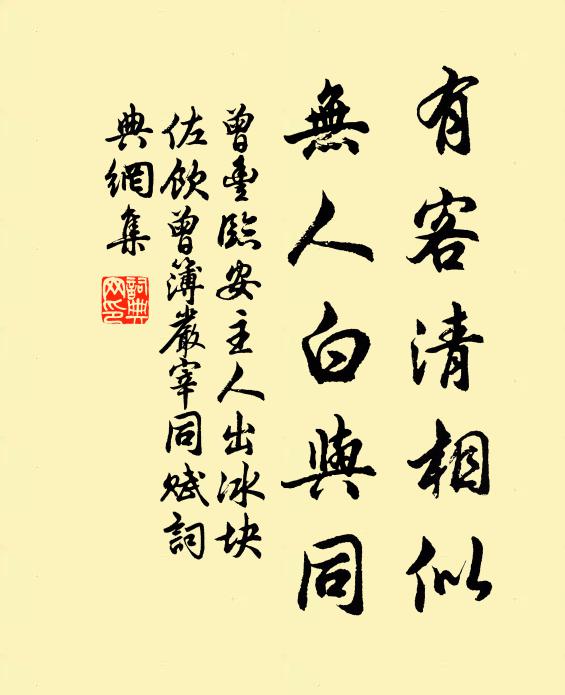 有客清相似
無人白與同
曾豐臨安主人出冰块
佐飲曾簿嚴宰同赋詞
典網集
詞典網印